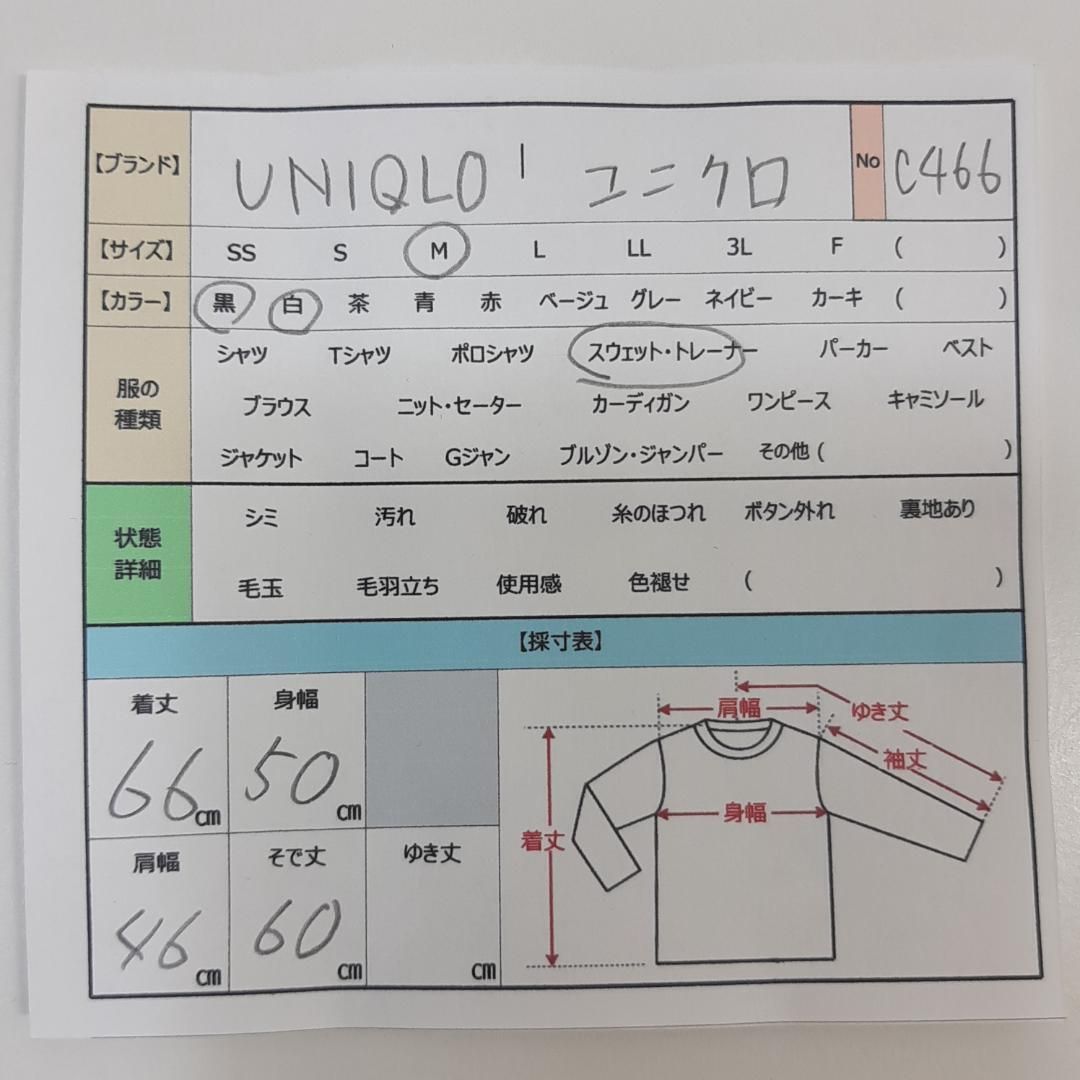 【ブランド】 UNIQLO ユニクロ No C466
【サイズ】 SS S M L LL 3L F ( )
【カラー】 黒 白 茶 青 赤 ベージュ グレー ネイビー カーキ ( )
服の種類
シャツ Tシャツ ポロシャツ スウェット・トレーナー パーカー ベスト
ブラウス ニット・セーター カーディガン ワンピース キャミソール
ジャケット コート Gジャン ブルゾン・ジャンパー その他 ( )
状態詳細
シミ 汚れ 破れ 糸のほつれ ボタン外れ 裏地あり
毛玉 毛羽立ち 使用感 色褪せ ( )
【採寸表】
着丈 身幅
66cm 50cm
肩幅 そで丈 ゆき丈
46cm 60cm cm
肩幅 ゆき丈
袖丈
身幅
着丈